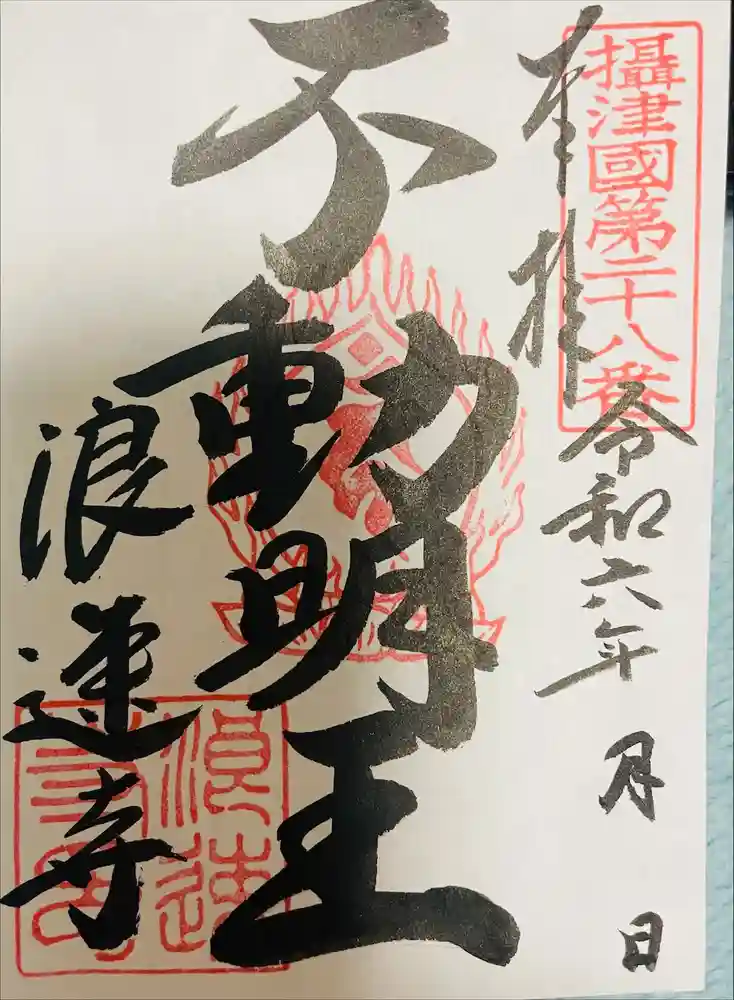 攝津國第二十八番
奉拝
令和六年 月 日
不動明王
浪速寺
浪速
寺印